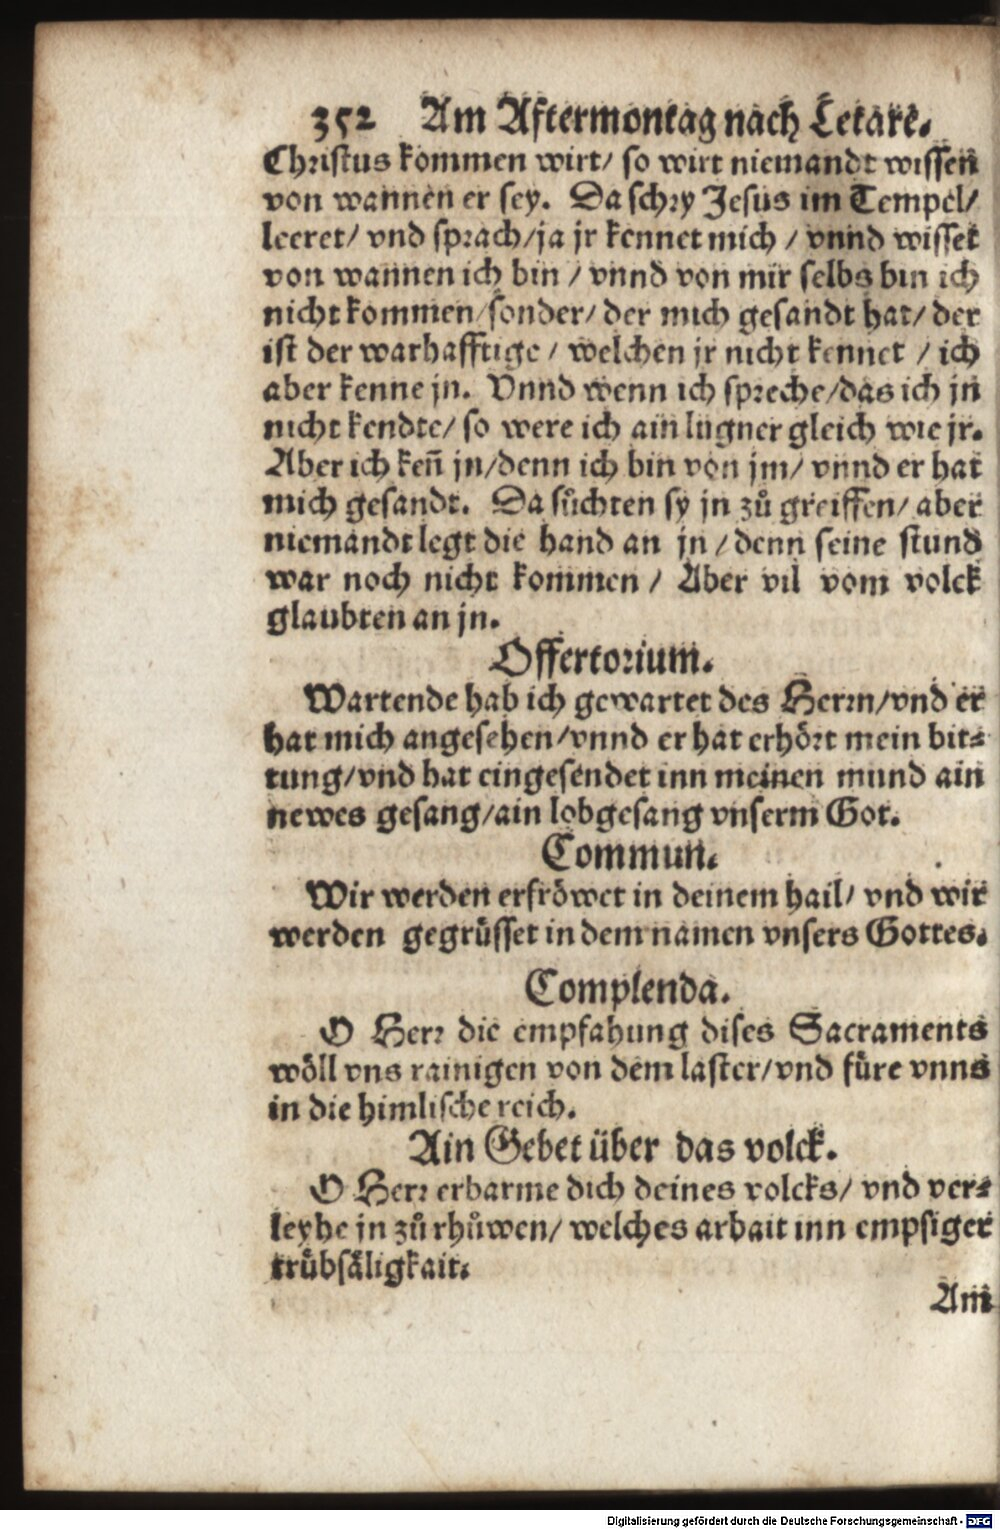 352 Am Aftermontag nach Letare.
Christus kommen wirt/ so wirt niemandt wissen
von wannen er sey. Da schry Jesus im Tempel/
leeret/ vnd sprach/ja jr kennet mich / vnnd wisset
von wannen ich bin / vnnd von mir selbs bin ich
nicht kommen/sonder/ der mich gesandt hat/ der
ist der warhafftige / welchen jr nicht kennet / ich
aber kenne jn. Vnnd wenn ich spreche/das ich jn
nicht kendte/ so were ich ain lugner gleich wie jr.
Aber ich keñ jn/denn ich bin von jm/ vnnd er hat
mich gesandt. Da sůchten sy jn zů greiffen/ aber
niemandt legt die hand an jn / denn seine stund
war noch nicht kommen / Aber vil vom volck
glaubten an jn.
Offertorium.
Wartende hab ich gewartet des Herrn/vnd er
hat mich angesehen/vnnd er hat erhört mein bit-
tung/vnd hat eingesendet inn meinen mund ain
newes gesang/ain lobgesang vnserm Got.
Commun.
Wir werden erfröwet in deinem hail/ vnd wir
werden gegrüsset in dem namen vnsers Gottes.
Complenda.
O Herr die empfahung dises Sacraments
wöll vns rainigen von dem laster/vnd füre vnns
in die himlische reich.
Ain Gebet über das volck.
O Herr erbarme dich deines volcks/ vnd ver-
leyhe jn zů rhůwen/ welches arbait inn empsiger
trübsäligkait.
Am
Digitalisierung gefördert durch die Deutsche Forschungsgemeinschaft - DFG